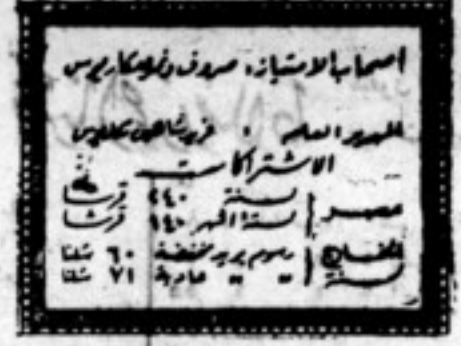 اصحاب الامتياز: صروف ونمر ومكاريوس
المدير العام:
الاشتراكات
مصر | لسنة ٢٤٠ قرشا
لستة اشهر ١٤٠ قرشا
الخارج | رسوم بريد مخفضة ٦٠ شلنا
لسنة | عادية ٧١ شلنا